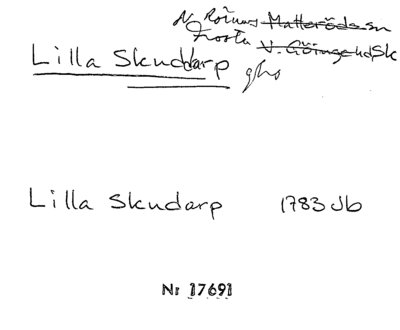 N. Rörums M̶a̶t̶t̶e̶r̶ö̶d̶s̶ sn
Frosta V̶.̶ G̶ö̶i̶n̶g̶e̶ hd Sk
Lilla Skuddarp ghs
Lilla Skudarp 1783 Jb
Nr 17691